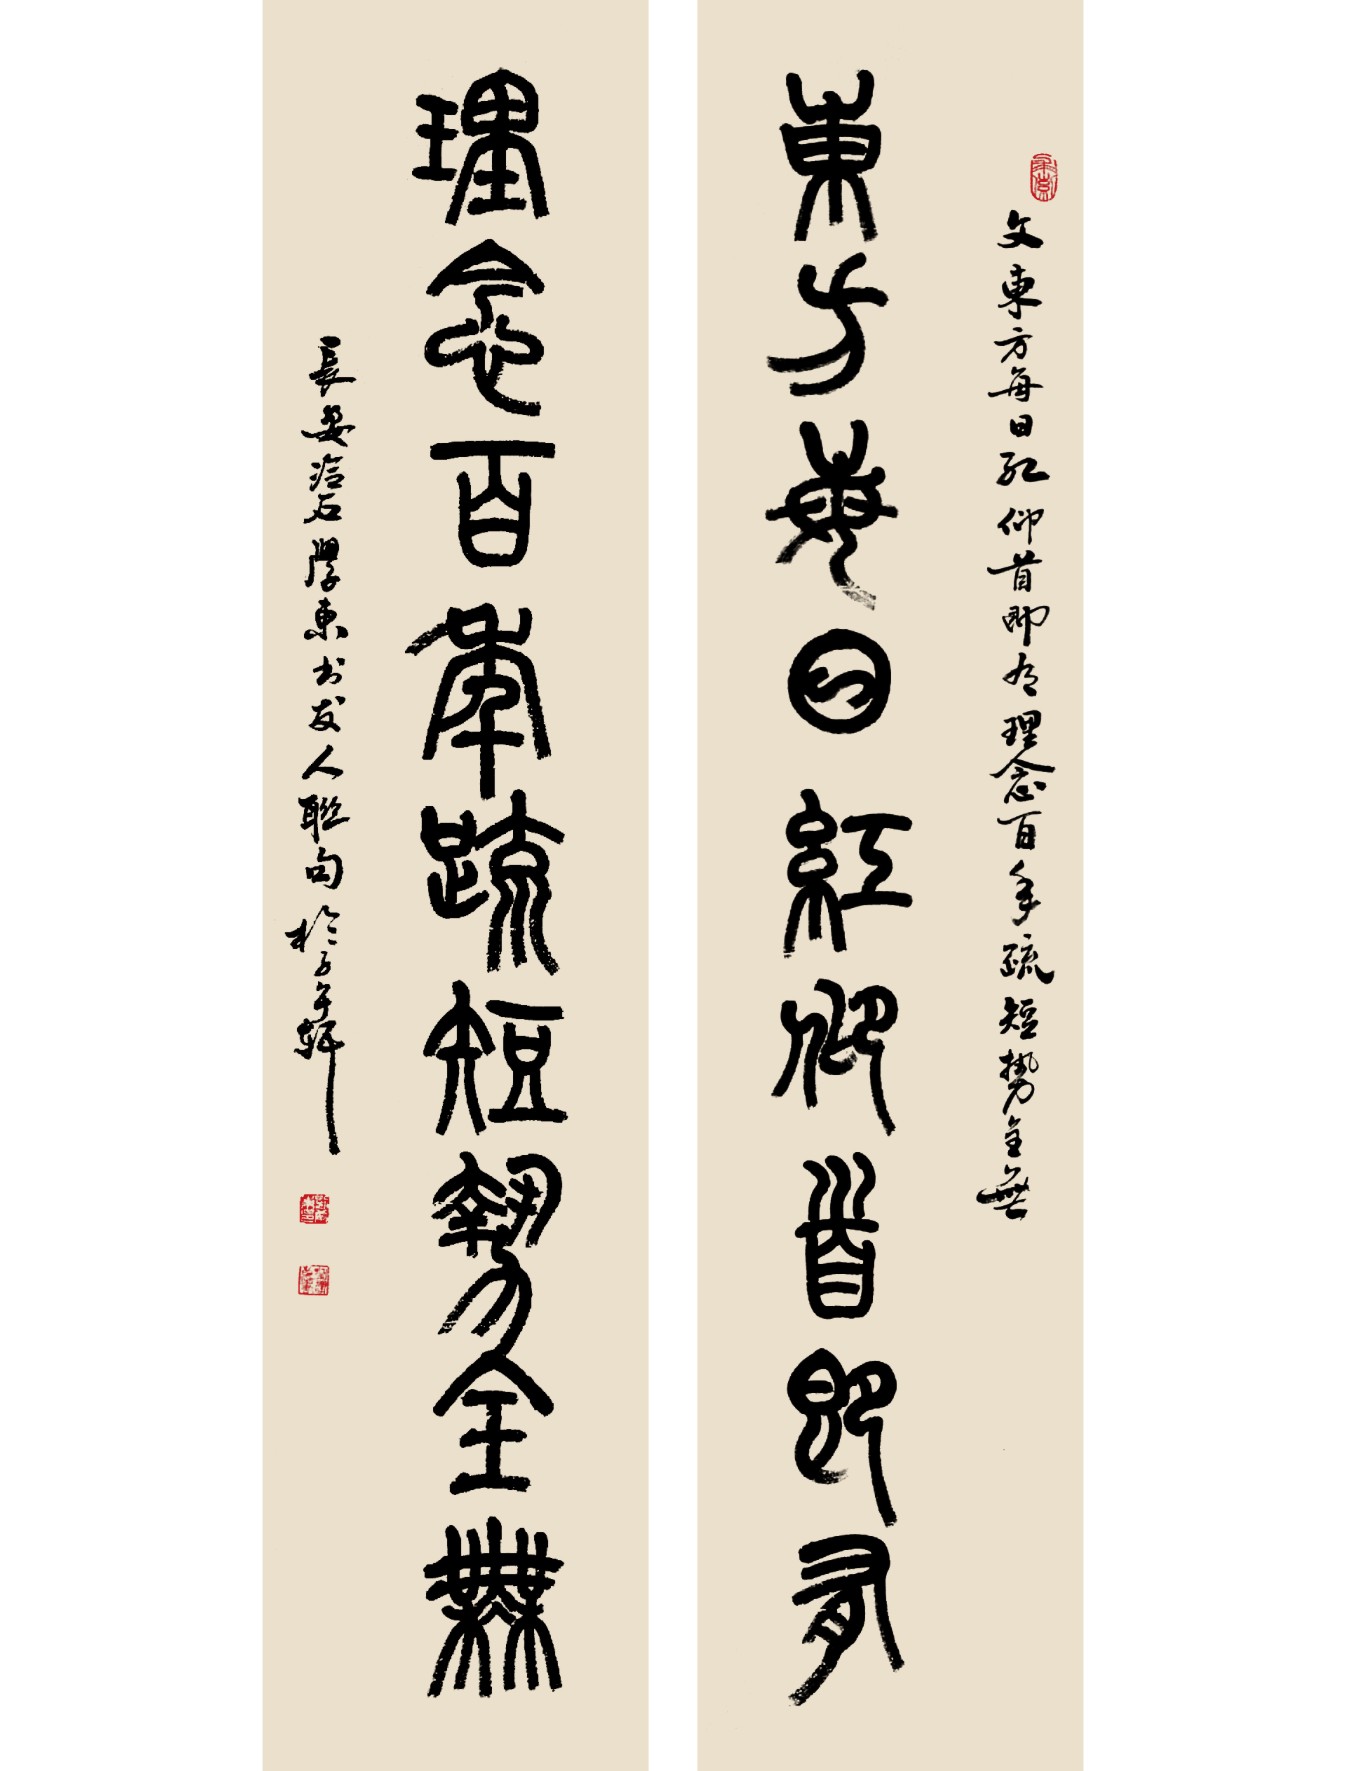 文東方每日紅仰首即有理念百年疏短勢全無
東方每日紅仰首即有
理念百年疏短勢全無
長安冷石學東书友人聯句於子午軒